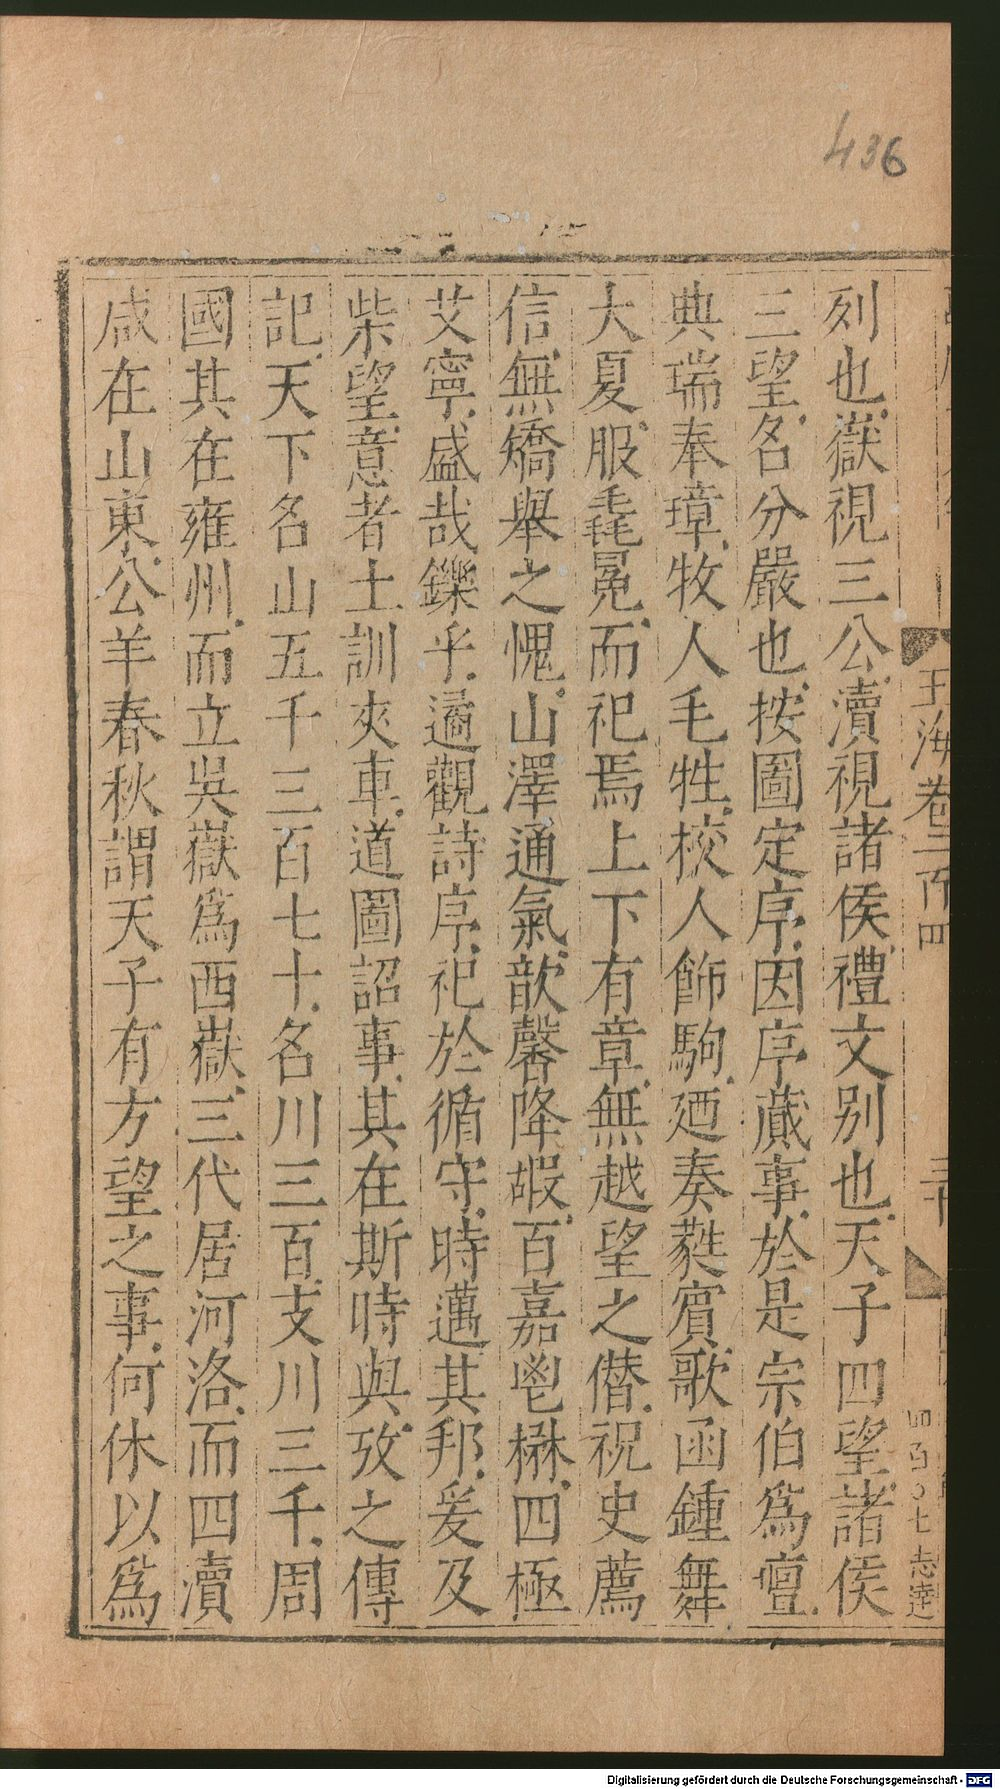 436
列也嶽視三公瀆視諸侯禮文別也天子四望諸侯
三望名分嚴也按圖定序因序蕆事於是宗伯爲壇
典瑞奉璋牧人毛牲校人飾駒廼奏蕤賓歌函鍾舞
大夏服毳冕而祀焉上下有章無越望之僭祝史薦
信無矯舉之愧山澤通氣歆馨降嘏百嘉鬯楙四極
艾寧盛哉鑠乎遹觀詩序祀於循守時邁其邦爰及
柴望意者土訓夾車道圖詔事其在斯時與攷之傳
記天下名山五千三百七十名川三百支川三千周
國其在雍州而立吳嶽爲西嶽三代居河洛而四瀆
咸在山東公羊春秋謂天子有方望之事何休以爲
玉海卷二百四
三十
四百〇七
志達
Digitalisierung gefördert durch die Deutsche Forschungsgemeinschaft - DFG